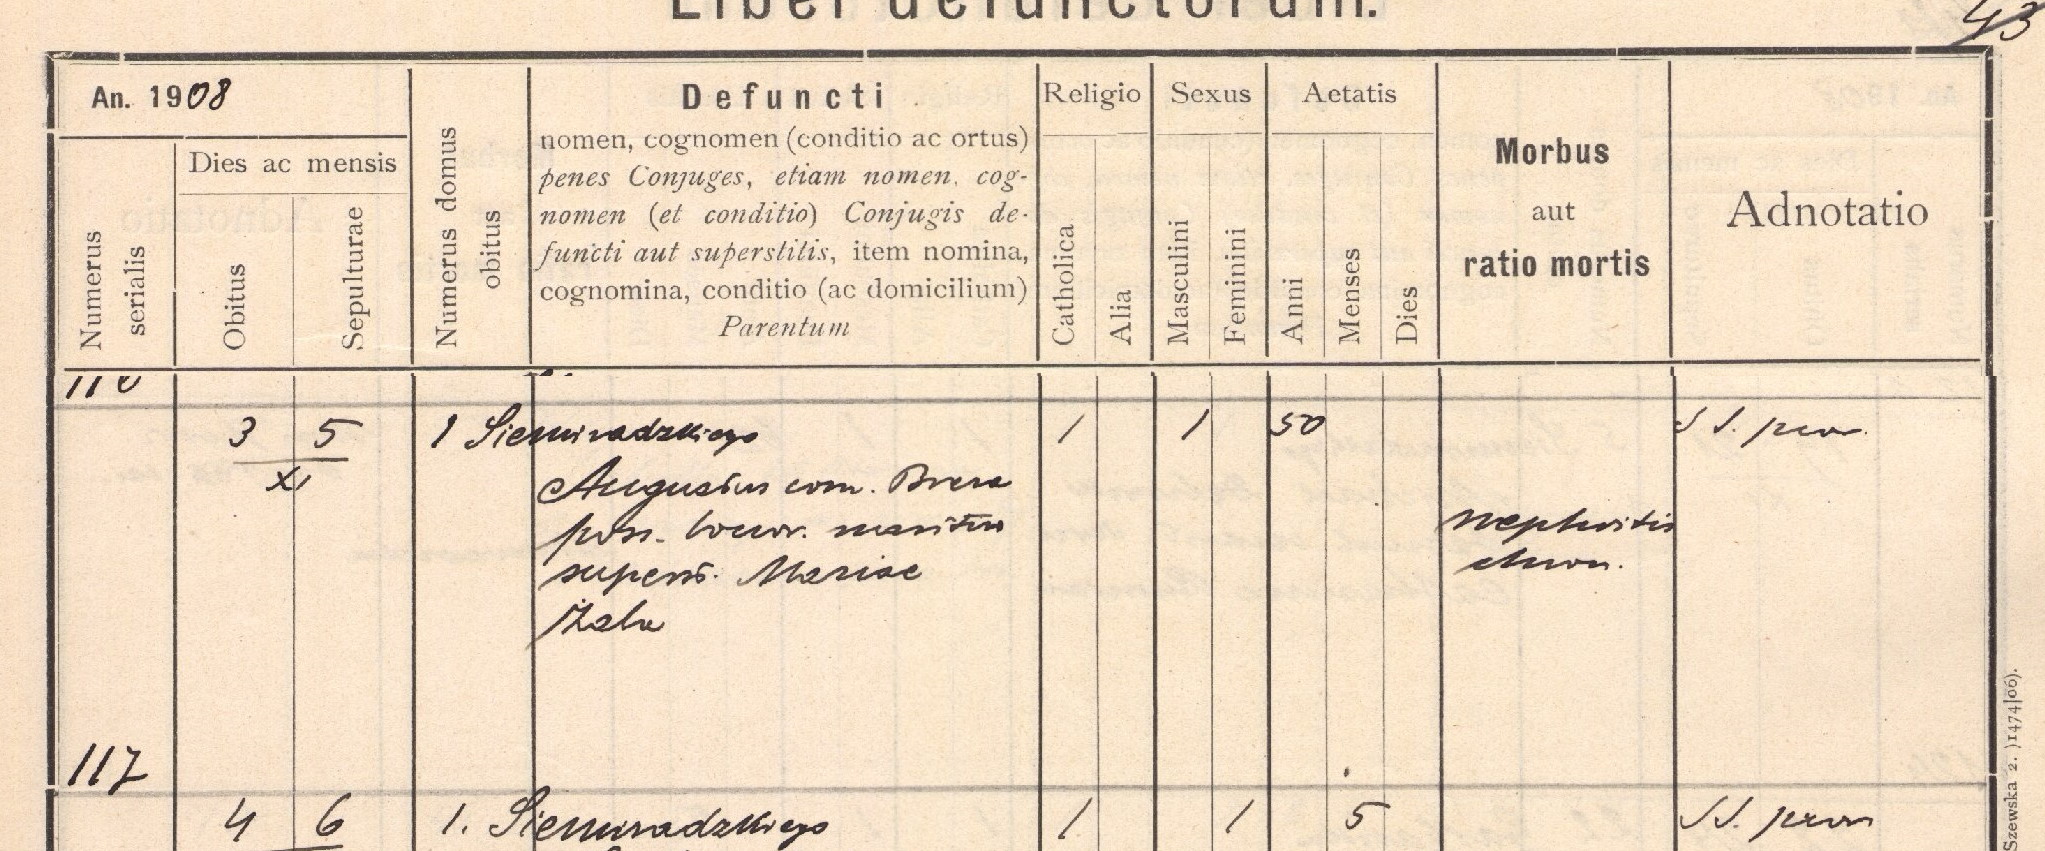 Liber defunctorum.
43
An. 1908
Numerus serialis
Dies ac mensis
Obitus
Sepulturae
Numerus domus obitus
Defuncti
nomen, cognomen (conditio ac ortus)
penes Conjuges, etiam nomen, cog-
nomen (et conditio) Conjugis de-
functi aut superstitis, item nomina,
cognomina, conditio (ac domicilium)
Parentum
Religio
Catholica
Alia
Sexus
Masculini
Feminini
Aetatis
Anni
Menses
Dies
Morbus
aut
ratio mortis
Adnotatio
116
3 5 1 Siemiradzkiego 1 1 50 SS. prov.
XI
Augustus com.
poss. maritus
superst. Mariae
nephritis
chron.
117
4 6 1. Siemiradzkiego 1 1 5 SS. prov
Szewska 2. )1474|06).